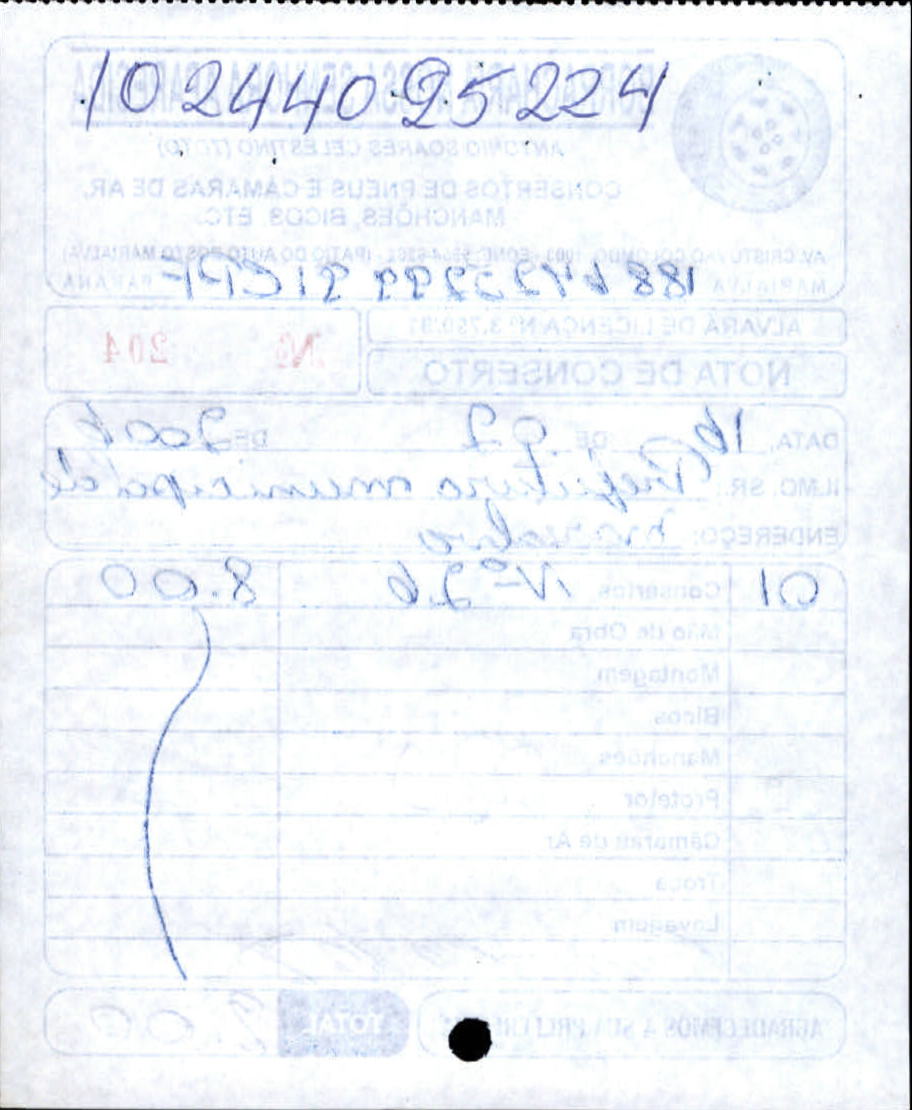 10244095224
BORRACHARIA NOSSA SENHORA APARECIDA
ANTONIO SOARES CELESTINO (TOTO)
CONSERTOS DE PNEUS E CÂMARAS DE AR,
MANCHÕES, BICOS, ETC.
AV. CRISTOVÃO COLOMBO, (PATIO DO AUTO POSTO MARIALVA)
MARIALVA PARANÁ
ALVARÁ DE LICENÇA Nº
NOTA DE CONSERTO Nº 204
DATA, 16 DE 02 DE 2006
ILMO. SR.: Prefeitura municipal de
ENDEREÇO: Marialva
01 Consertos Nº 26 8.00
Mão de Obra
Montagem
Bicos
Manchões
Protetor
Câmaras de Ar
Troca
Lavagem
AGRADECEMOS A SUA TOTAL 8.00